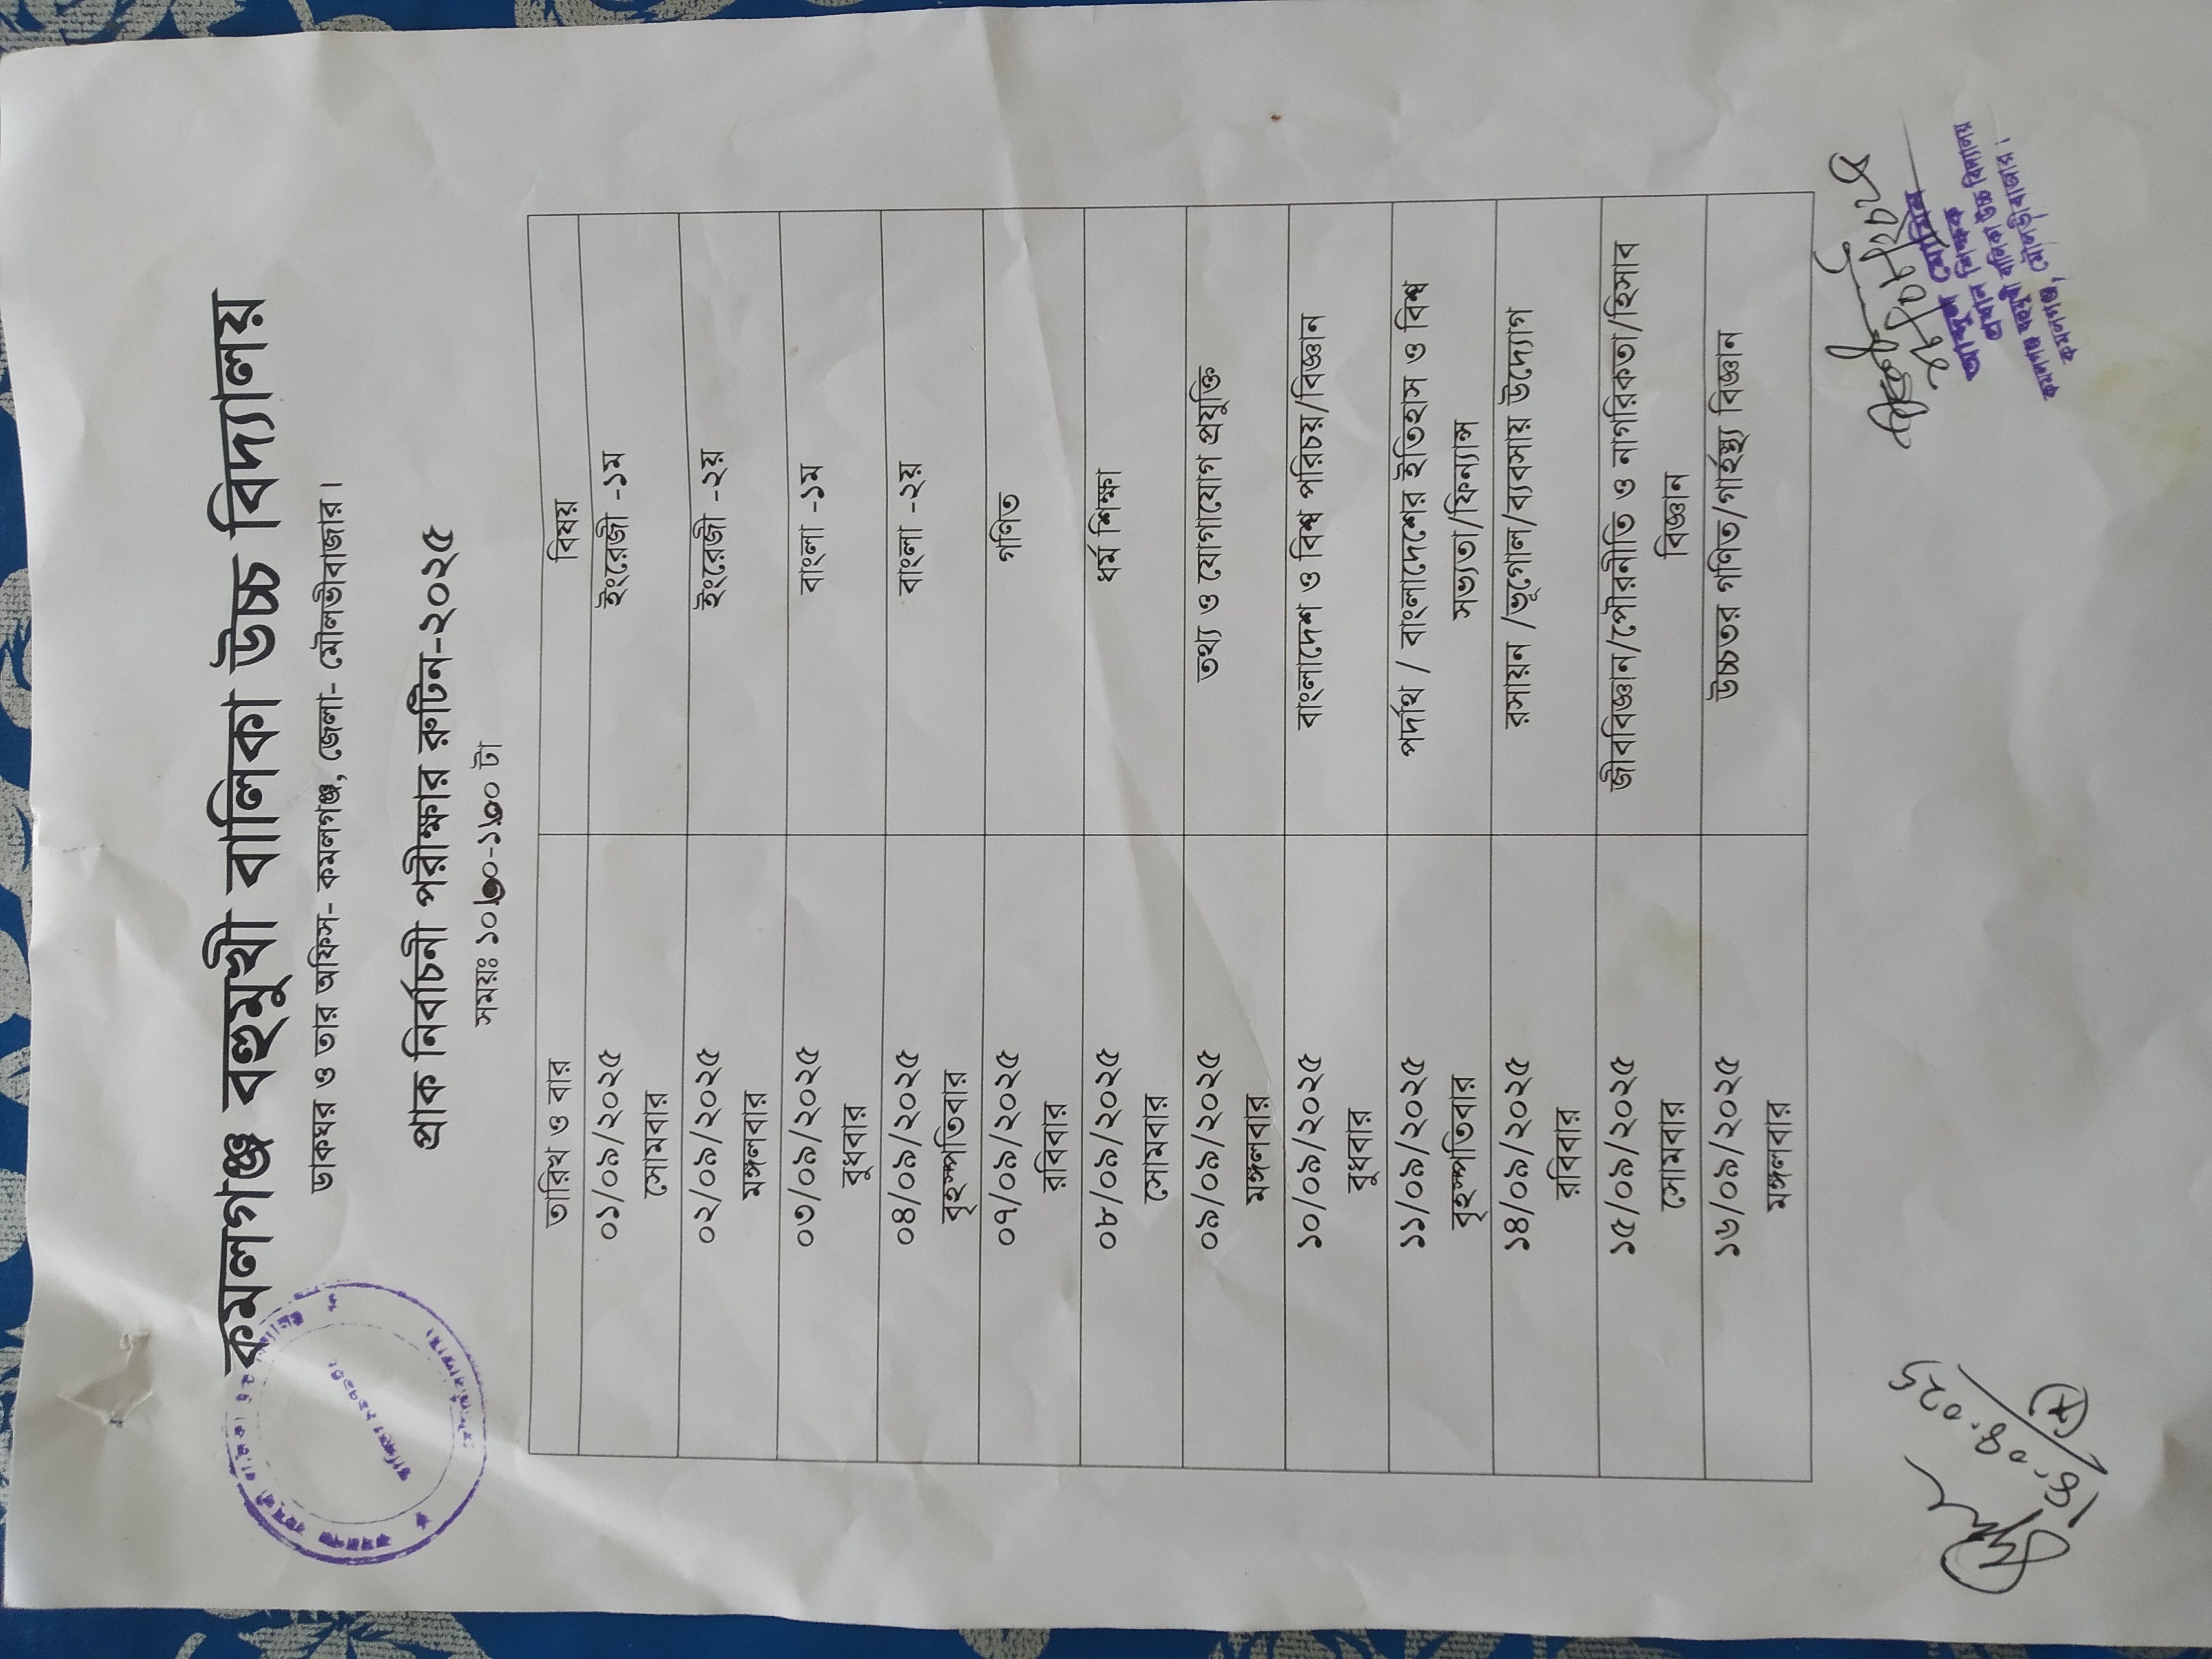 কমলগঞ্জ বহুমুখী বালিকা উচ্চ বিদ্যালয়
ডাকঘর ও তার অফিস- কমলগঞ্জ, জেলা- মৌলভীবাজার।
প্রাক নির্বাচনী পরীক্ষার রুটিন-২০২৫
সময়ঃ টা
তারিখ ও বার বিষয়
০১/০৯/২০২৫ ইংরেজী -১ম
সোমবার
০২/০৯/২০২৫ ইংরেজী -২য়
মঙ্গলবার
০৩/০৯/২০২৫ বাংলা -১ম
বুধবার
০৪/০৯/২০২৫ বাংলা -২য়
বৃহস্পতিবার
০৭/০৯/২০২৫ গণিত
রবিবার
০৮/০৯/২০২৫ ধর্ম শিক্ষা
সোমবার
০৯/০৯/২০২৫ তথ্য ও যোগাযোগ প্রযুক্তি
মঙ্গলবার
১০/০৯/২০২৫ বাংলাদেশ ও বিশ্ব পরিচয়/বিজ্ঞান
বুধবার
১১/০৯/২০২৫ পর্দাথ / বাংলাদেশের ইতিহাস ও বিশ্ব
বৃহস্পতিবার সভ্যতা/ফিন্যান্স
১৪/০৯/২০২৫ রসায়ন /ভূগোল/ব্যবসায় উদ্যোগ
রবিবার
১৫/০৯/২০২৫ জীববিজ্ঞান/পৌরনীতি ও নাগরিকতা/হিসাব
সোমবার বিজ্ঞান
১৬/০৯/২০২৫ উচ্চতর গণিত/গার্হস্থ্য বিজ্ঞান
মঙ্গলবার
প্রধান শিক্ষক
কমলগঞ্জ বহুমুখী বালিকা উচ্চ বিদ্যালয়
কমলগঞ্জ, মৌলভীবাজার।